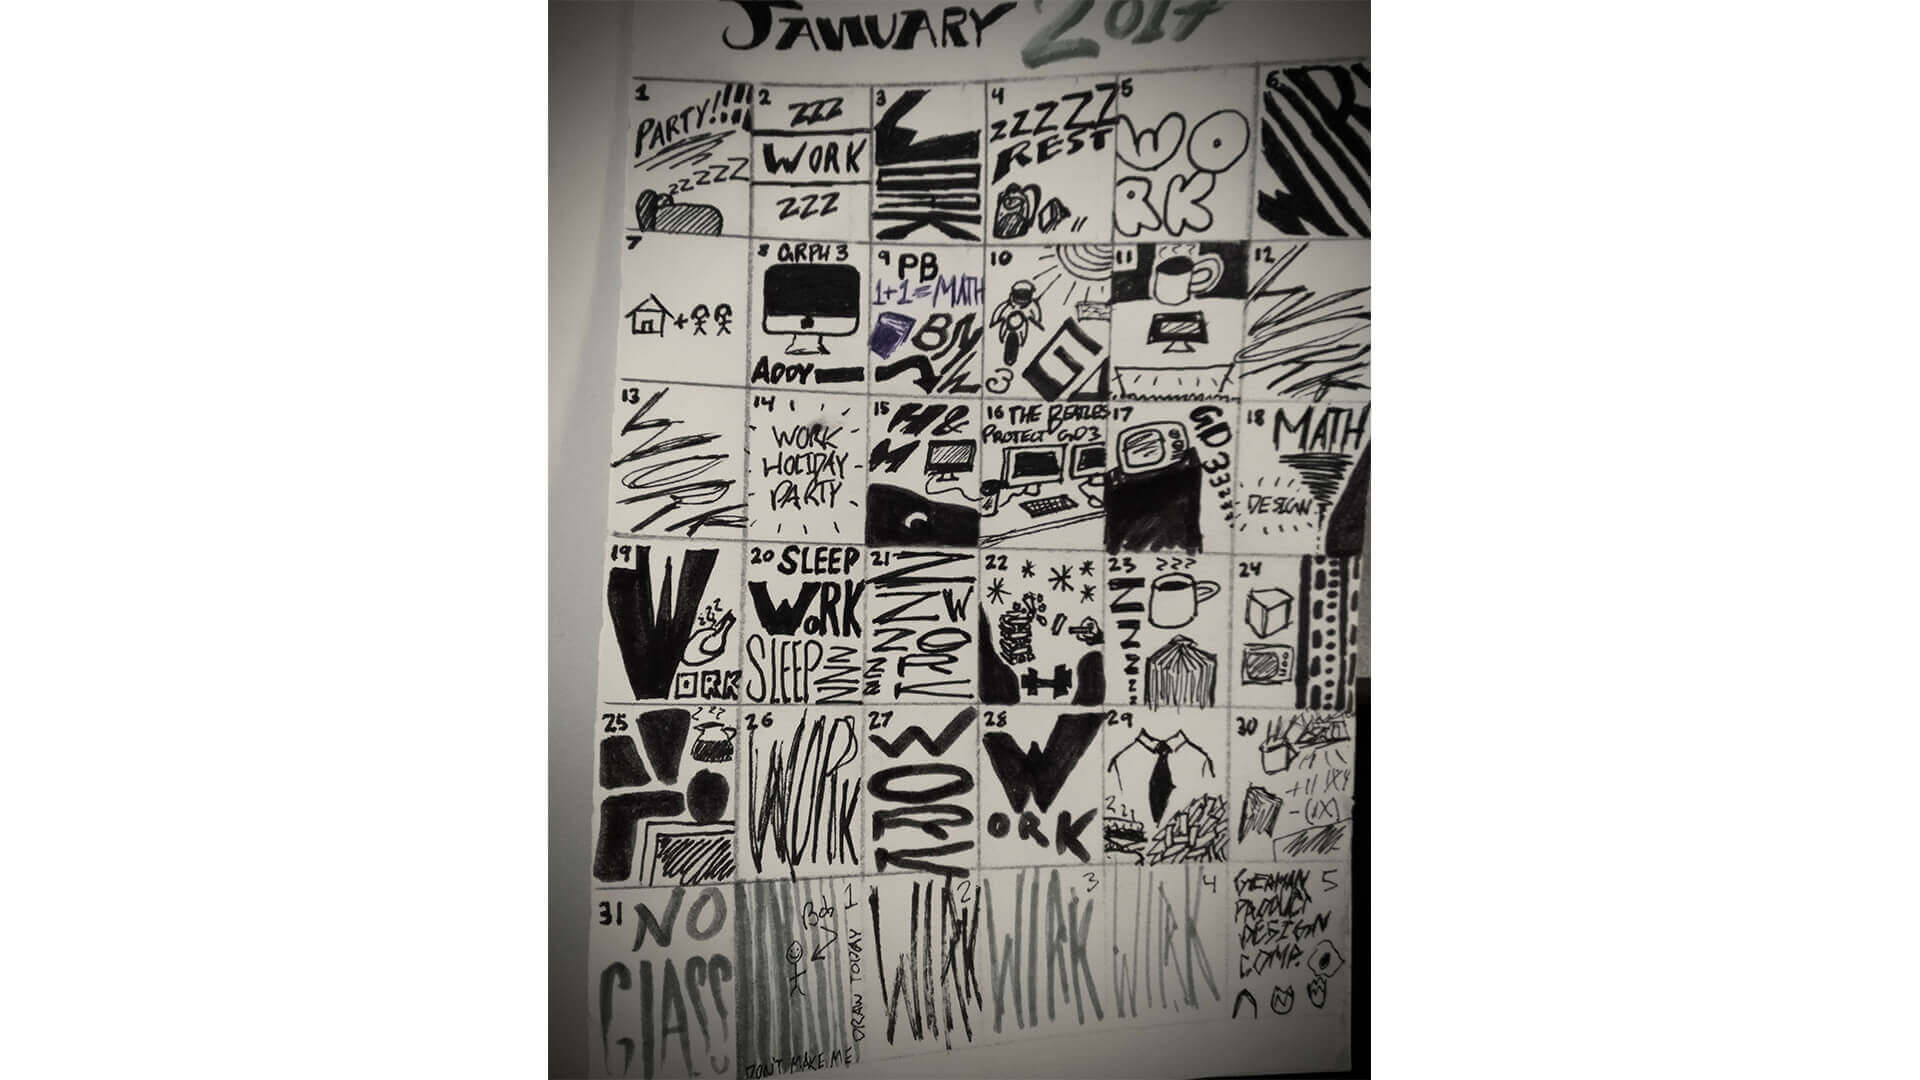 JANUARY 2017
1
PARTY!!!!
ZZZZZ
2
ZZZ
WORK
ZZZ
3
WORK
4
ZZZZZ
REST
5
WO
RK
6
WORK
7
+
8 GRPH 3
ADDY
9 PB
1+1=MATH
10
11
12
WORK
13
WORK
14
WORK
HOLIDAY
PARTY
15 H&
M
16 THE BEATLES
PROTECT GD3
17
GD3333
18 MATH
DESIGN
19 W
ZZZ
ORK
20 SLEEP
WORK
SLEEP ZZZ
21
ZZZZZ
WORK
22
23
ZZZZZZ
24
25
26
WORK
27
WORK
28
W
ORK
29
30
31 NO
CLASS
1
Bob
DON'T MAKE ME
DRAW TODAY
2
WORK
3
WORK
4
WORK
5
GERMAN
PRODUCT
DESIGN
COMP.